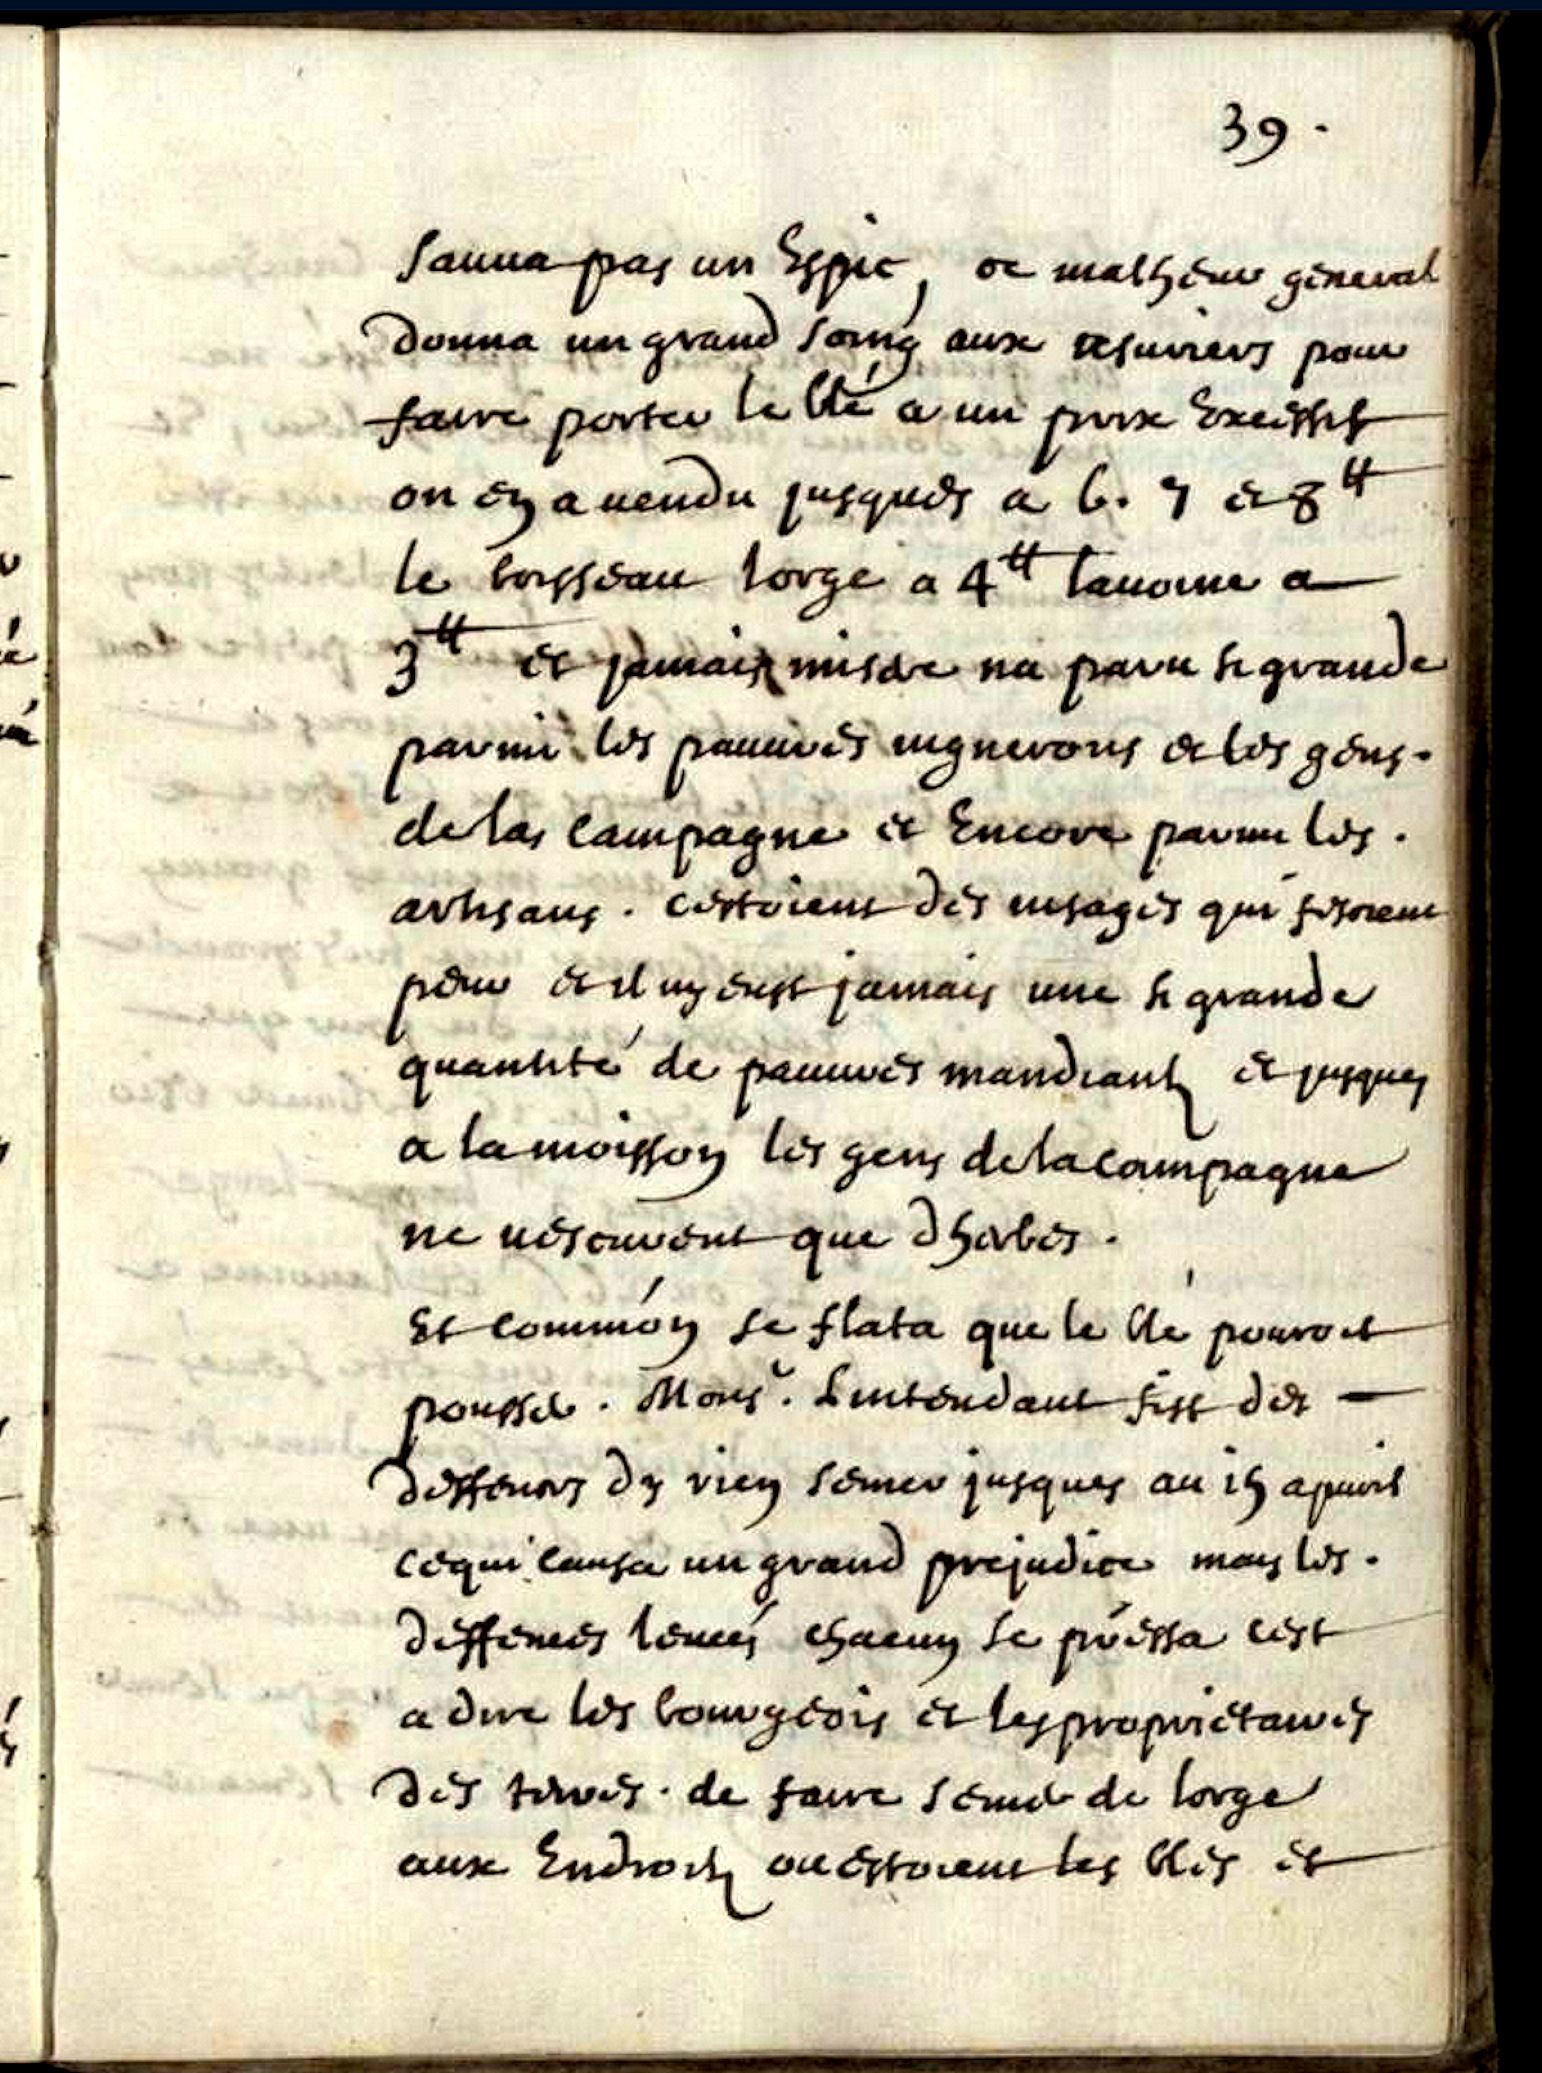 39.
sauua pas un Espic, ce malheur general
donna un grand soing aux usuriers pour
faire porter le blé a un prix Excessif
on en a uendu jusques a 6. 7 et 8 ₶
le boisseau lorge a 4 ₶ lauoine a
3 ₶ et jamais misere na paru si grande
parmi les pauures uignerons et les gens
de la campagne et Encore parmi les
artisans. cestoient des uisages qui fesoient
peur et il ny eust jamais une si grande
quantité de pauures mandiants et jusques
a la moisson les gens de la campagne
ne uescurent que dherbes.
Et comme on se flata que le blé pouroit
pousser. Monsr. Lintendant fist des
deffences dy rien semer jusques au 15 apuril
ce qui causa un grand prejudice mais les
deffences leuées chacun se pressa cest
a dire les bourgeois et les proprietaires
des terres. de faire semer de lorge
aux Endroits ou estoient les blés et